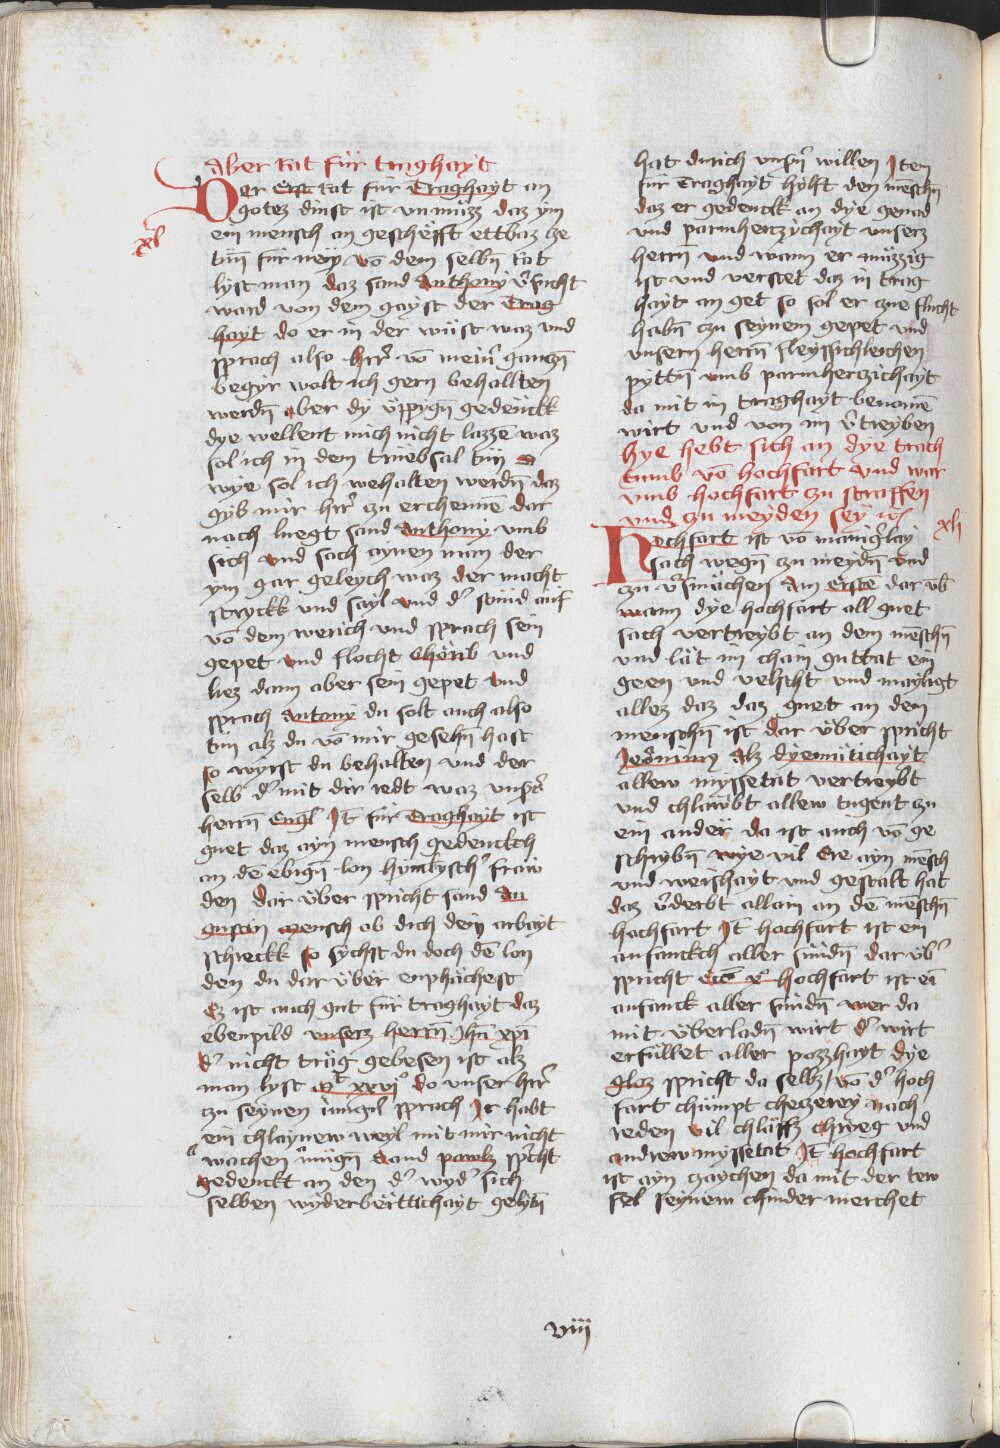 Aber rat für traghayt
Der erst rat für Traghayt an
gotez dinst ist unmüzz daz ym
xl
ein mensch an geschëfft ettbaz ze
tun̄ für nem vō dem selbn̄ rat
lyst man daz sand Anthony v̄sucht
ward von dem gayst der Trag
hayt do er in der wüst waz und
sprach also hrr̄ vō mein̄ ganczn̄
begyr wolt ich gern behallten
werdn̄ aber dy üppign̄ gedënckk
dye wellent mich nicht lazzē waz
sol ich in dem triebsal tun
wye sol ich wehalten werdn̄ daz
gyb mir hrr̄ zu erchennē dar
nach luegt sand Anthony umb
sich und sach aynen man der
ym gar geleych waz der macht
strickk und sayl und d' stund auf
vō dem werich und sprach sein
gepet und flocht chörib und
liez dann aber sein gepet und
sprach Antony du solt auch also
tun alz du vō mir gesehn̄ hast
so wyrst du behalten und der
selb d' mit dir redt waz unsrs̄
herrn̄ Engl It̄ für Traghayt ist
guet daz ayn mensch gedenckch
an dē ebign̄ lon hymlysch' frëw
den dar über spricht sand Au
gustin mensch ob dich dein arbayt
schreckk so sychst du doch dē lon
den du dar über enphächest
Ez ist auch gut für traghayt daz
ebenpild unserz herrn̄ Jhū xpī
d' nicht träg gebesen ist alz
man lyst Mt xxvi° do unser hrr̄
zu seynen iungn̄ sprach Ir habt
ein chlaynew weyl mit mir nicht
wachen mügn̄ Sand pawls spricht
gedenckt an den d' wyd' sich
selben wyderbërttichayt gelytn̄
hat durich unsrn̄ willen Item
für Traghayt hylft den menschn̄
daz er gedenckk an dye genad
und parmherczychayt unserz
herrn̄ und wann er müzzig
ist und verstet daz in trag
hayt an get so sol er zue flucht
habn̄ czu seynem gepet und
unsern herrn̄ fleyssichleichen
pyttn̄ umb parmherczichayt
da mit im traghayt benomē
wirt und von im v̄treyben
Hye hebt sich an dye trach
tumb vō hochfart und war
umb hochfart zu straffen
und zu meyden sey ic̄
xli
Hochfart ist vō manig'lay
sach wegn̄ zu meydn̄ und
zu v̄smächen Am erstē dar üb
wann dye hochfart all guet
sach vertreybt an dem mēschn̄
und lät im chain guttat ein
geen und velscht und mayligt
allez daz daz guet an den
menschn̄ ist dar über spricht
Jerōnimus Alz dyemütichayt
allew myssetat vertreybt
und chlawbt allew tugent zu
ein ander da ist auch vō ge
schrybn̄ wye vil Ere ayn mēsch
und weishayt und gestalt hat
daz v̄derbt allain an dē menschn̄
hochfart It̄ hochfart ist ein
anfanckch aller sundn̄ dar üb'
spricht eccī x° hochfart ist ein
anfanck aller sundn̄ wer da
mit überladn̄ wirt d' wirt
erfüllet aller pozzhayt dye
gloz spricht da selbz vō d' hoch
fart chümpt checzerey nach
reden vil chläffz chrieg und
andrew myssetat It̄ hochfart
ist ayn zaychen da mit der tew
fel seynew chinder merchet
viii